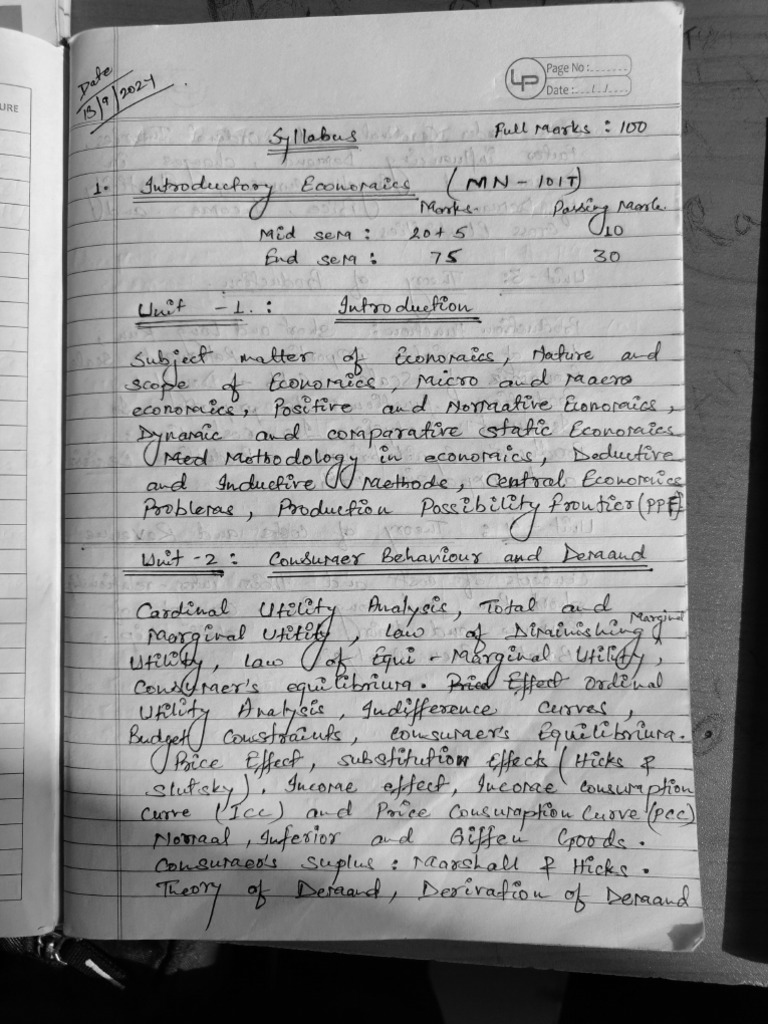 URE
Date
13/9/2024
LP
Page No :.......
Date :..../..../....
Syllabus Full Marks : 100
1. Introductory Economics (MN - 101T)
Marks. Passing Mark.
Mid sem : 20 + 5 10
End sem : 75 30
Unit - 1. : Introduction
Subject matter of Economics, Nature and
scope of Economics, Micro and Macro
economics, Positive and Normative Economics,
Dynamic and comparative static Economics
Med Mothodology in economics, Deductive
and Inductive Methods, Central Economics
Problems, Production Possibility frontier (PPF)
Unit - 2 : Consumer Behaviour and Demand
Cardinal Utility Analysis, Total and
Marginal Utility, law of Diminishing Marginal
Utility, law of Equi - Marginal Utility,
Consumer's equilibrium. Price Effect Ordinal
Utility Analysis, Indifference Curves,
Budget Constraints, consumer's Equilibrium.
Price Effect, substitution Effects (Hicks &
Slutsky), Income effect, Income consumption
Curve (Icc) and Price Consumption Curve (pcc)
Normal, Inferior and Giffen Goods.
Consumer's Suplus : Marshall & Hicks.
Theory of Demand, Derivation of Demand